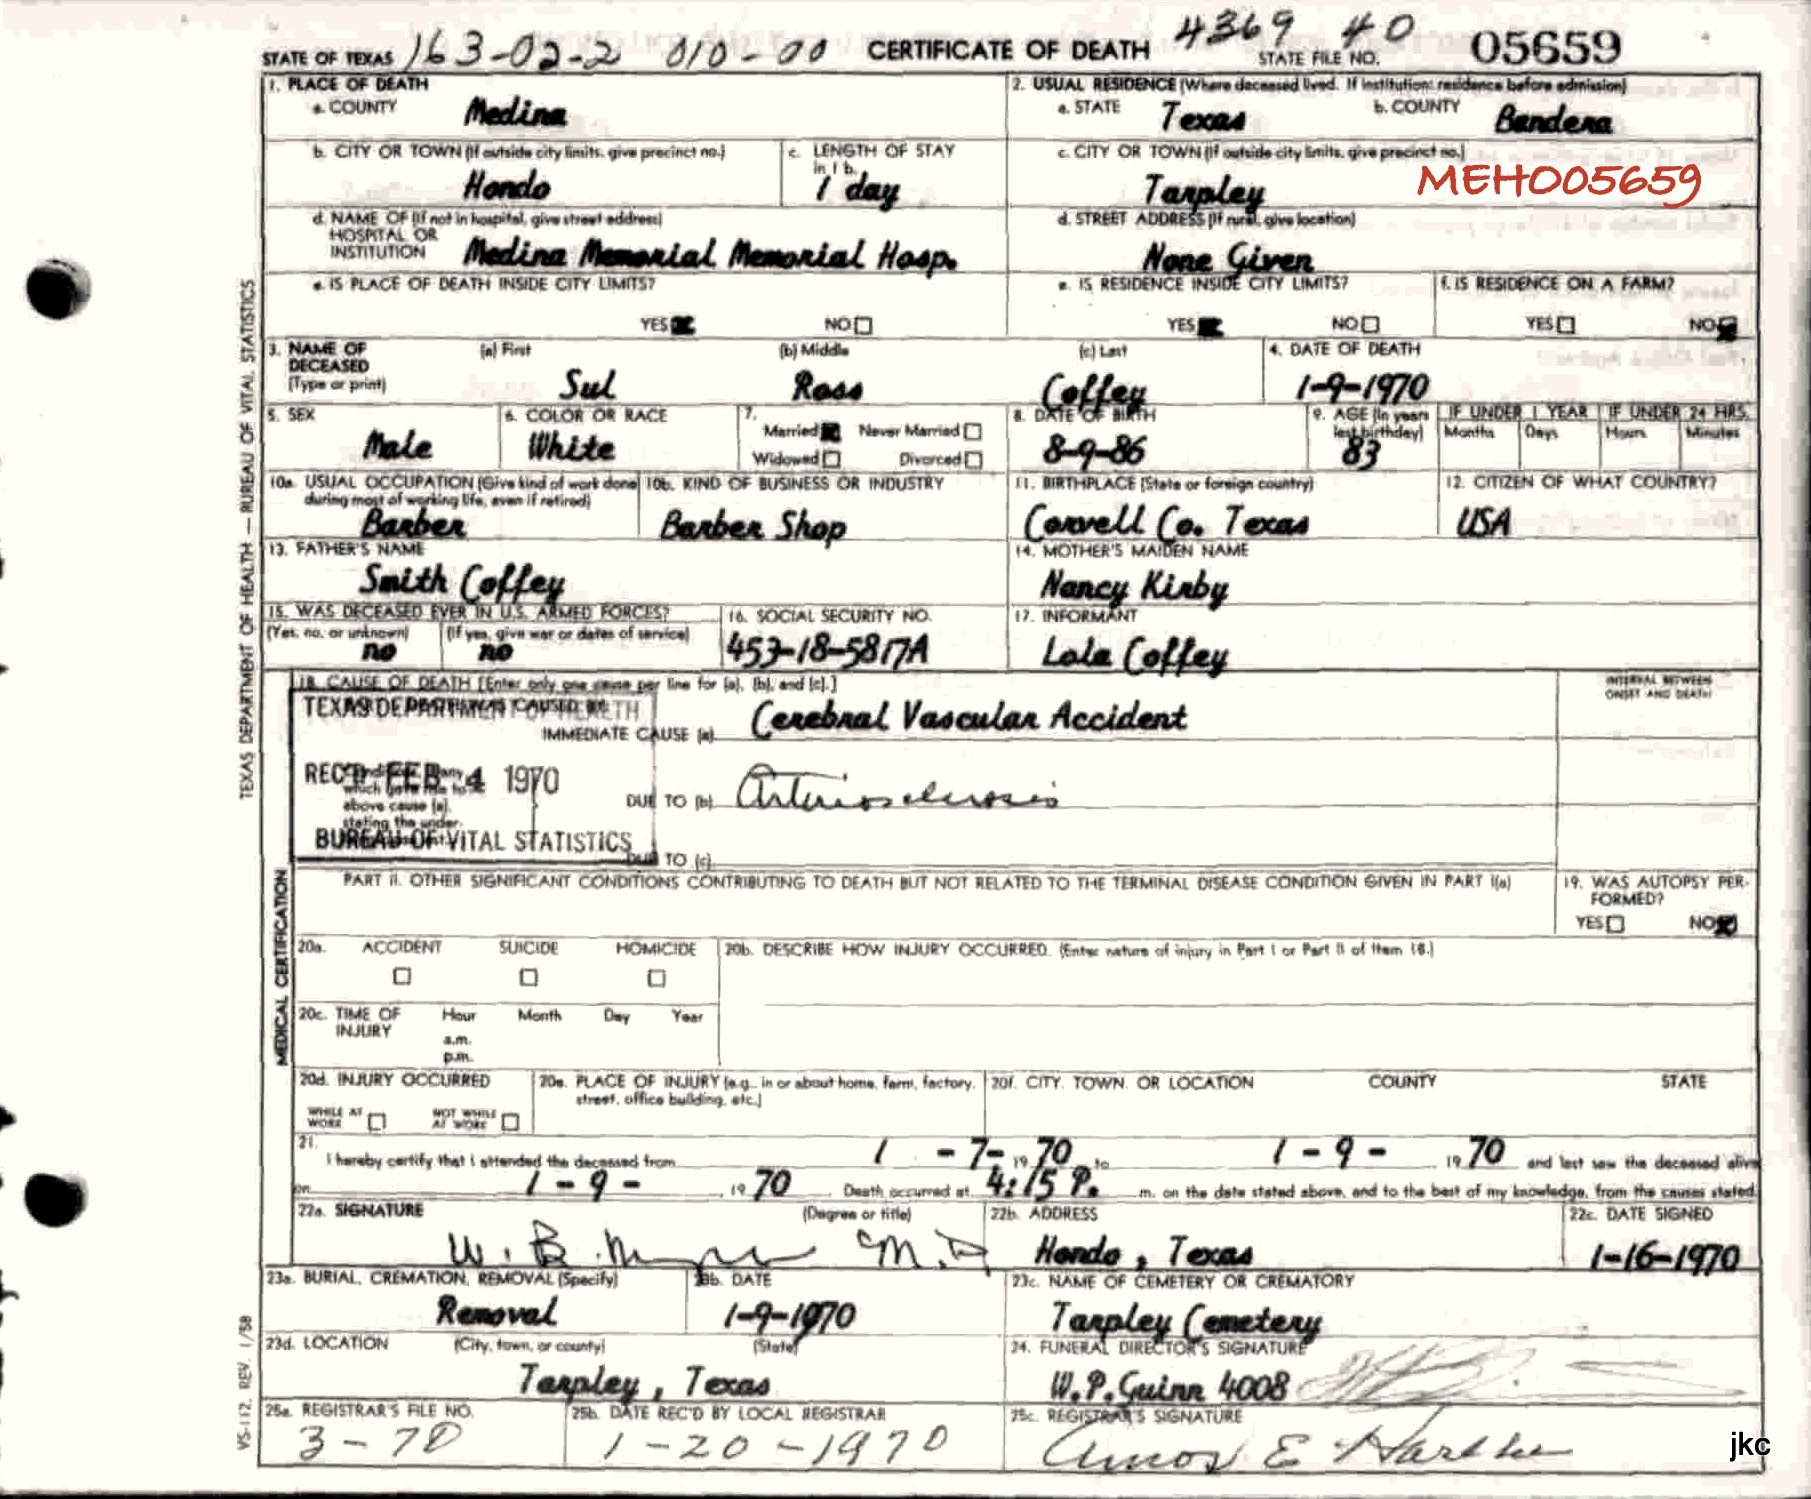 STATE OF TEXAS 163-02-2 010-00 CERTIFICATE OF DEATH 4369 40 STATE FILE NO. 05659
1. PLACE OF DEATH
a. COUNTY Medina
2. USUAL RESIDENCE (Where deceased lived. If institution: residence before admission)
a. STATE Texas b. COUNTY Bandera
b. CITY OR TOWN (If outside city limits, give precinct no.) Hondo
c. LENGTH OF STAY in 1 b. 1 day
c. CITY OR TOWN (If outside city limits, give precinct no.) Tarpley
MEHO05659
d. NAME OF (If not in hospital, give street address) HOSPITAL OR INSTITUTION Medina Memorial Memorial Hosp.
d. STREET ADDRESS (If rural, give location) None Given
e. IS PLACE OF DEATH INSIDE CITY LIMITS?
YES NO
e. IS RESIDENCE INSIDE CITY LIMITS?
YES NO
f. IS RESIDENCE ON A FARM?
YES NO
3. NAME OF DECEASED (Type or print)
(a) First Sul
(b) Middle Ross
(c) Last Coffey
4. DATE OF DEATH 1-9-1970
5. SEX Male
6. COLOR OR RACE White
7. Married Never Married
Widowed Divorced
8. DATE OF BIRTH 8-9-86
9. AGE (In years last birthday) 83
IF UNDER 1 YEAR Months Days
IF UNDER 24 HRS. Hours Minutes
10a. USUAL OCCUPATION (Give kind of work done during most of working life, even if retired) Barber
10b. KIND OF BUSINESS OR INDUSTRY Barber Shop
11. BIRTHPLACE (State or foreign country) Corvell Co. Texas
12. CITIZEN OF WHAT COUNTRY? USA
13. FATHER'S NAME Smith Coffey
14. MOTHER'S MAIDEN NAME Nancy Kirby
15. WAS DECEASED EVER IN U.S. ARMED FORCES?
(Yes, no, or unknown) no
(If yes, give war or dates of service) no
16. SOCIAL SECURITY NO. 453-18-5817A
17. INFORMANT Lola Coffey
18. CAUSE OF DEATH [Enter only one cause per line for (a), (b), and (c).]
INTERVAL BETWEEN ONSET AND DEATH
TEXAS DEPARTMENT OF HEALTH
IMMEDIATE CAUSE (a) Cerebral Vascular Accident
REC'D FEB 4 1970
which gave rise to
above cause (a),
stating the under-
DUE TO (b) Arteriosclerosis
BUREAU OF VITAL STATISTICS
DUE TO (c)
PART II. OTHER SIGNIFICANT CONDITIONS CONTRIBUTING TO DEATH BUT NOT RELATED TO THE TERMINAL DISEASE CONDITION GIVEN IN PART I(a)
19. WAS AUTOPSY PERFORMED?
YES NO
20a. ACCIDENT SUICIDE HOMICIDE
20b. DESCRIBE HOW INJURY OCCURRED. (Enter nature of injury in Part I or Part II of Item 18.)
20c. TIME OF INJURY Hour Month Day Year
a.m.
p.m.
20d. INJURY OCCURRED
WHILE AT WORK NOT WHILE AT WORK
20e. PLACE OF INJURY (e.g., in or about home, farm, factory, street, office building, etc.)
20f. CITY, TOWN, OR LOCATION COUNTY STATE
21.
I hereby certify that I attended the deceased from 1 -7- 1970 to 1 - 9 - 1970 and last saw the deceased alive
on 1 - 9 - 1970. Death occurred at 4:15 P. m. on the date stated above, and to the best of my knowledge, from the causes stated.
22a. SIGNATURE (Degree or title) M.D
22b. ADDRESS Hondo, Texas
22c. DATE SIGNED 1-16-1970
23a. BURIAL, CREMATION, REMOVAL (Specify) Removal
23b. DATE 1-9-1970
23c. NAME OF CEMETERY OR CREMATORY Tarpley Cemetery
23d. LOCATION (City, town, or county) (State) Tarpley, Texas
24. FUNERAL DIRECTOR'S SIGNATURE W.P. Guinn 4008
25a. REGISTRAR'S FILE NO. 3-70
25b. DATE REC'D BY LOCAL REGISTRAR 1-20-1970
25c. REGISTRAR'S SIGNATURE Amos E
jkc
TEXAS DEPARTMENT OF HEALTH — BUREAU OF VITAL STATISTICS
MEDICAL CERTIFICATION
VS-112, REV. 1/58